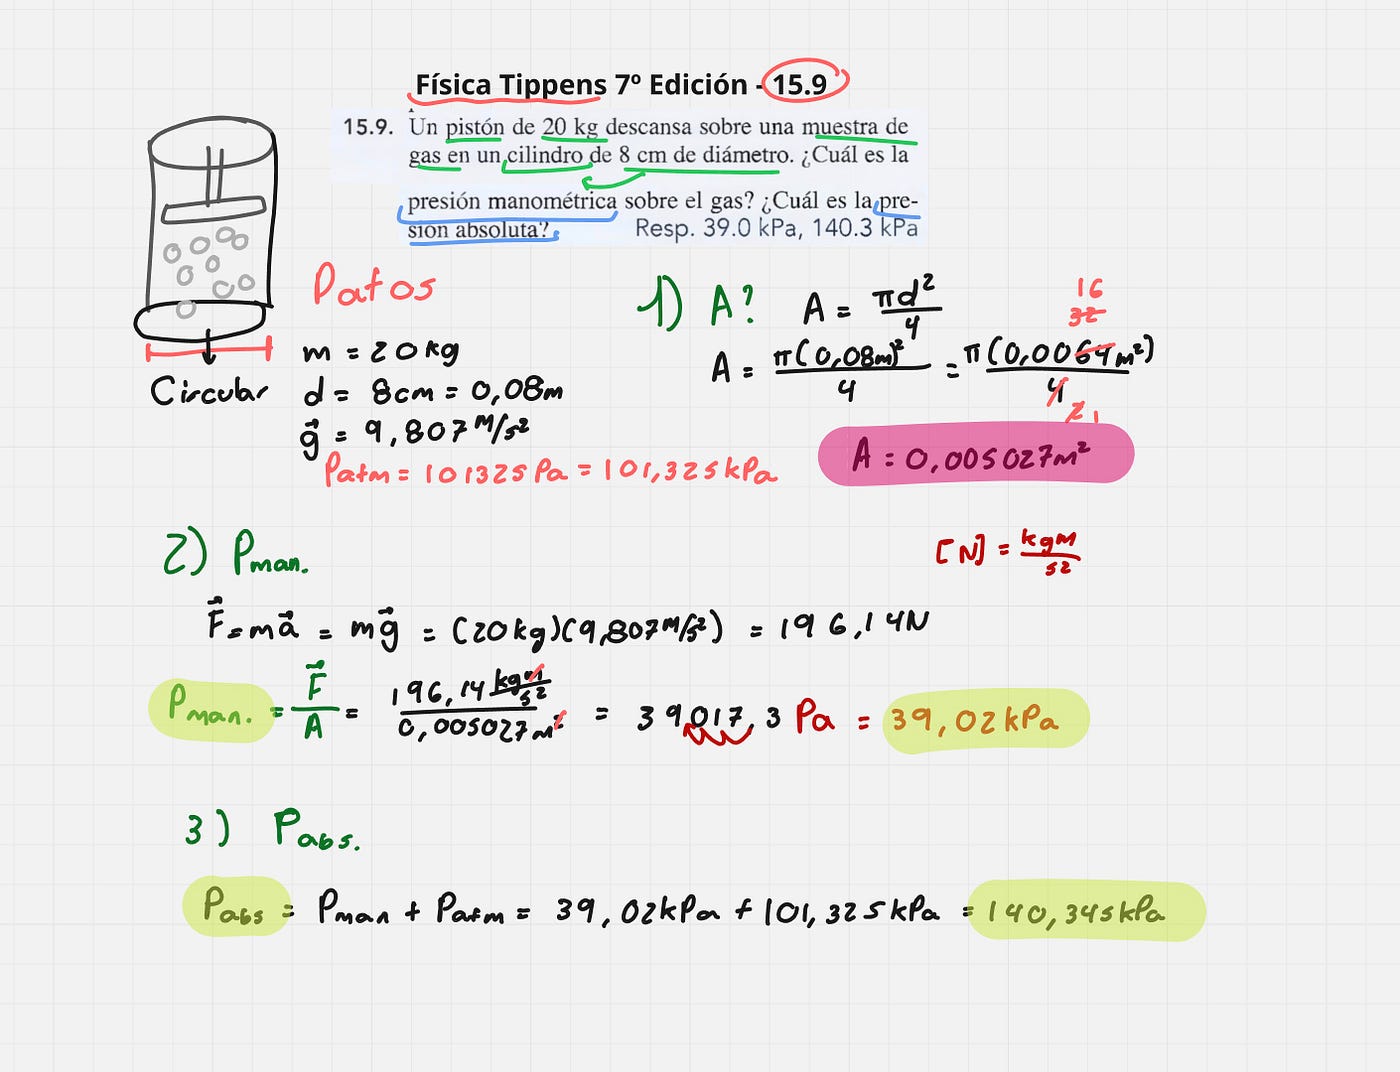 Física Tippens 7º Edición - 15.9
15.9. Un pistón de 20 kg descansa sobre una muestra de
gas en un cilindro de 8 cm de diámetro. ¿Cuál es la
presión manométrica sobre el gas? ¿Cuál es la pre-
sión absoluta? Resp. 39.0 kPa, 140.3 kPa
Circular
Datos
m = 20kg
d = 8cm = 0,08m
g⃗ = 9,807 m/s²
Patm = 101325 Pa = 101,325 kPa
1) A? A = πd²/4
16
32
A = π(0,08m)²/4 = π(0,0064m²)/4
2 1
A = 0,005027m²
2) Pman.
[N] = kgm/s²
F⃗ = ma⃗ = mg⃗ = (20kg)(9,807m/s²) = 196,14N
Pman. = F⃗/A = 196,14 kgm/s² / 0,005027m² = 39017,3 Pa = 39,02kPa
3) Pabs.
Pabs = Pman + Patm = 39,02kPa + 101,325kPa = 140,345kPa